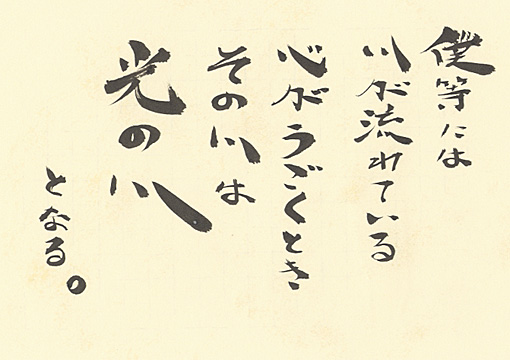 僕等には
川が流れている
心がうごくとき
その川は
光の川
となる。